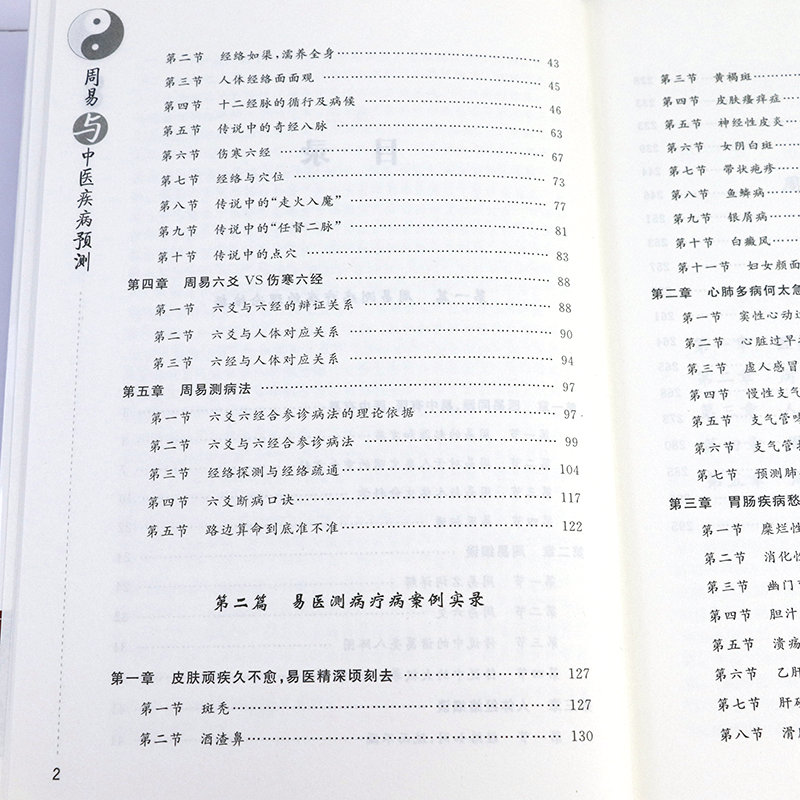 周易与中医疾病预测
第二节 经络如渠,濡养全身 43
第三节 人体经络面面观 45
第四节 十二经脉的循行及病候 46
第五节 传说中的奇经八脉 63
第六节 伤寒六经 67
第七节 经络与穴位 73
第八节 传说中的“走火入魔” 77
第九节 传说中的“任督二脉” 81
第十节 传说中的点穴 83
第四章 周易六爻VS伤寒六经 88
第一节 六爻与六经的辩证关系 88
第二节 六爻与人体对应关系 90
第三节 六经与人体对应关系 94
第五章 周易测病法 97
第一节 六爻六经合参诊病法的理论依据 97
第二节 六爻与六经合参诊病法 99
第三节 经络探测与经络疏通 104
第四节 六爻断病口诀 117
第五节 路边算命到底准不准 122
第二篇 易医测病疗病案例实录
第一章 皮肤顽疾久不愈,易医精深顷刻去 127
第一节 斑秃 127
第二节 酒渣鼻 130
2
第三节 黄褐斑
第四节 皮肤瘙痒症
第五节 神经性皮炎
第六节 女阴白斑
第七节 带状疱疹
第八节 鱼鳞病
第九节 银屑病
第十节 白癜风
第十一节 妇女颜面
第二章 心肺多病何太急
第一节 窦性心动过
第二节 心脏过早
第三节 虚人感冒
第四节 慢性支气
第五节 支气管哮
第六节 支气管扩
第七节 预测肺
第三章 胃肠疾病愁
第一节 糜烂性
第二节 消化性
第三节 幽门
第四节 胆汁
第五节 溃疡
第六节 乙肝
第七节 肝硬
第八节 滑